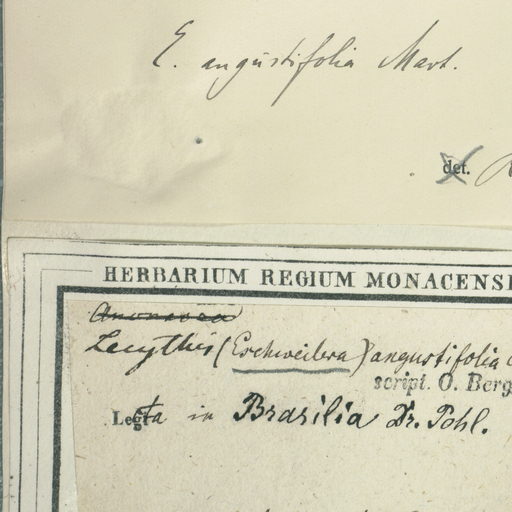 E. angustifolia Mart.
det.
HERBARIUM REGIUM MONACENS
Lecythis (Eschweilera) angustifolia
script. O. Berg
Legi ta in Brasilia Dr. Pohl.